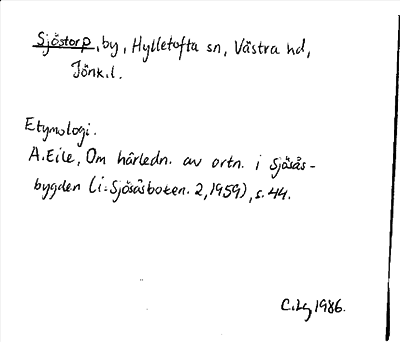 Sjöstorp, by, Hylletofta sn, Västra hd,
Jönk.l.
Etymologi.
A. Eile, Om härledn. av ortn. i Sjösås-
bygden (i: Sjösåsboken. 2, 1959), s. 44.
1986.